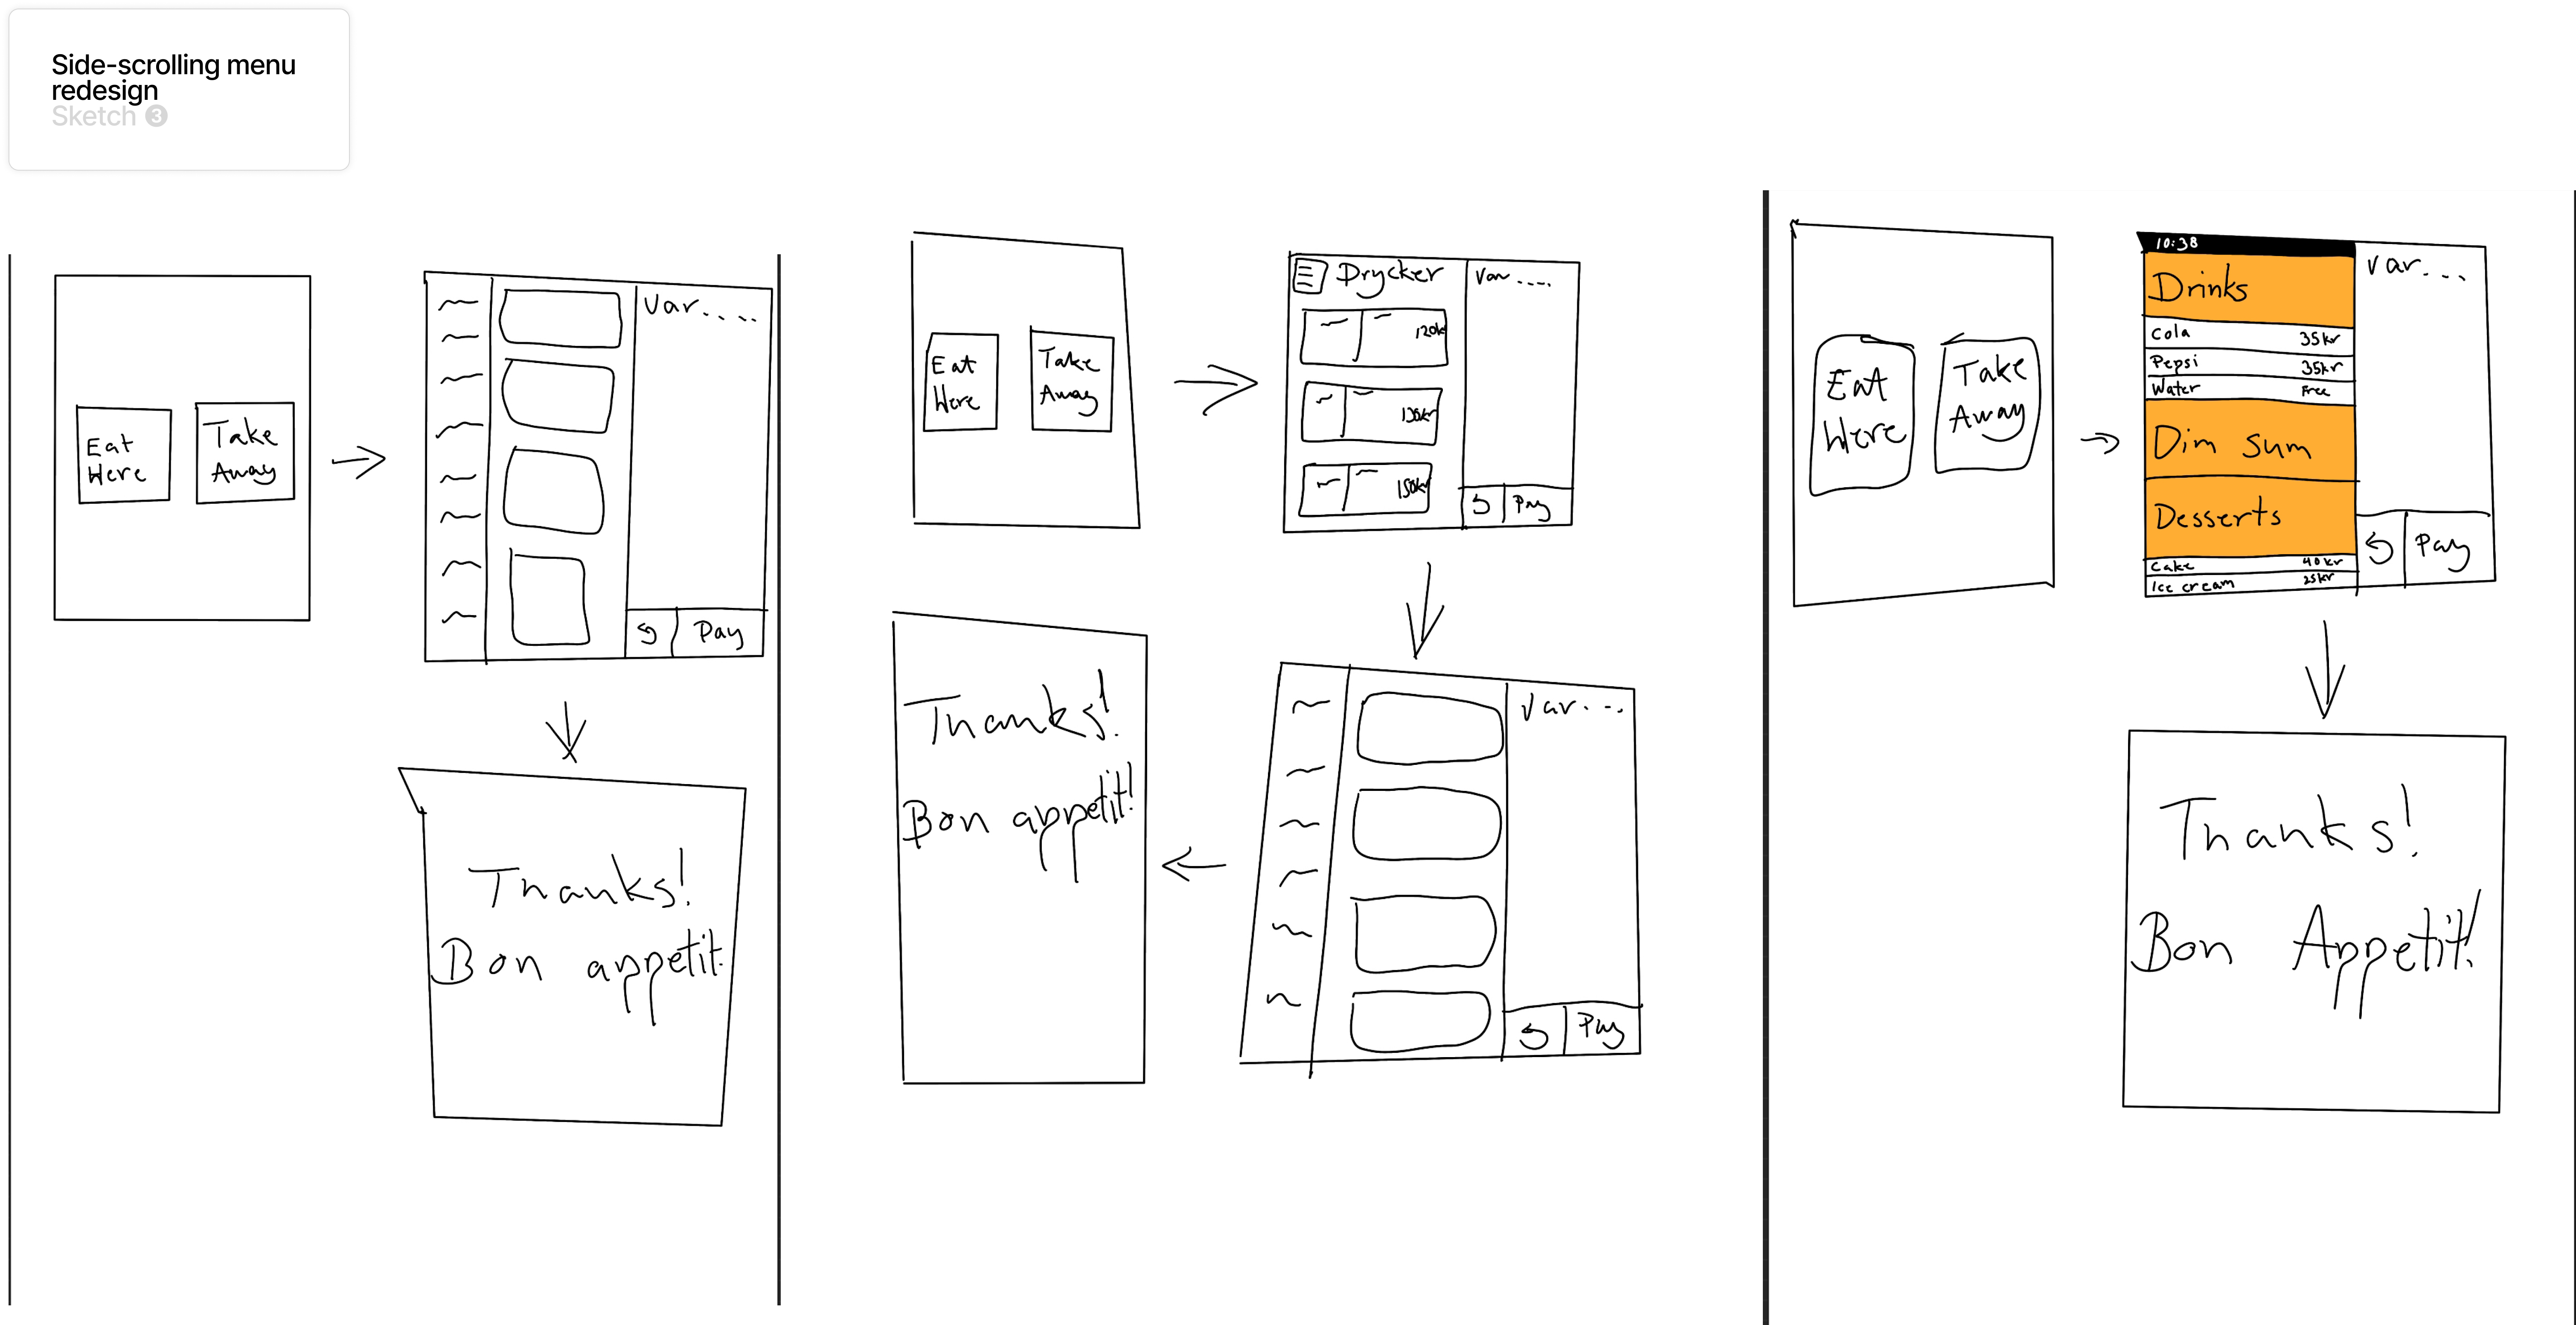 Side-scrolling menu
redesign
Sketch 3
Eat
Here
Take
Away
Var....
Pay
Thanks!
Bon appetit.
Eat
Here
Take
Away
Drycker
Var....
120kr
150kr
Pay
Var....
Pay
Thanks!
Bon appetit!
Eat
Here
Take
Away
10:38
Drinks
Cola 35kr
Pepsi 35kr
Water Free
Dim sum
Desserts
Cake 40kr
Ice cream 25kr
Var....
Pay
Thanks!
Bon Appetit!